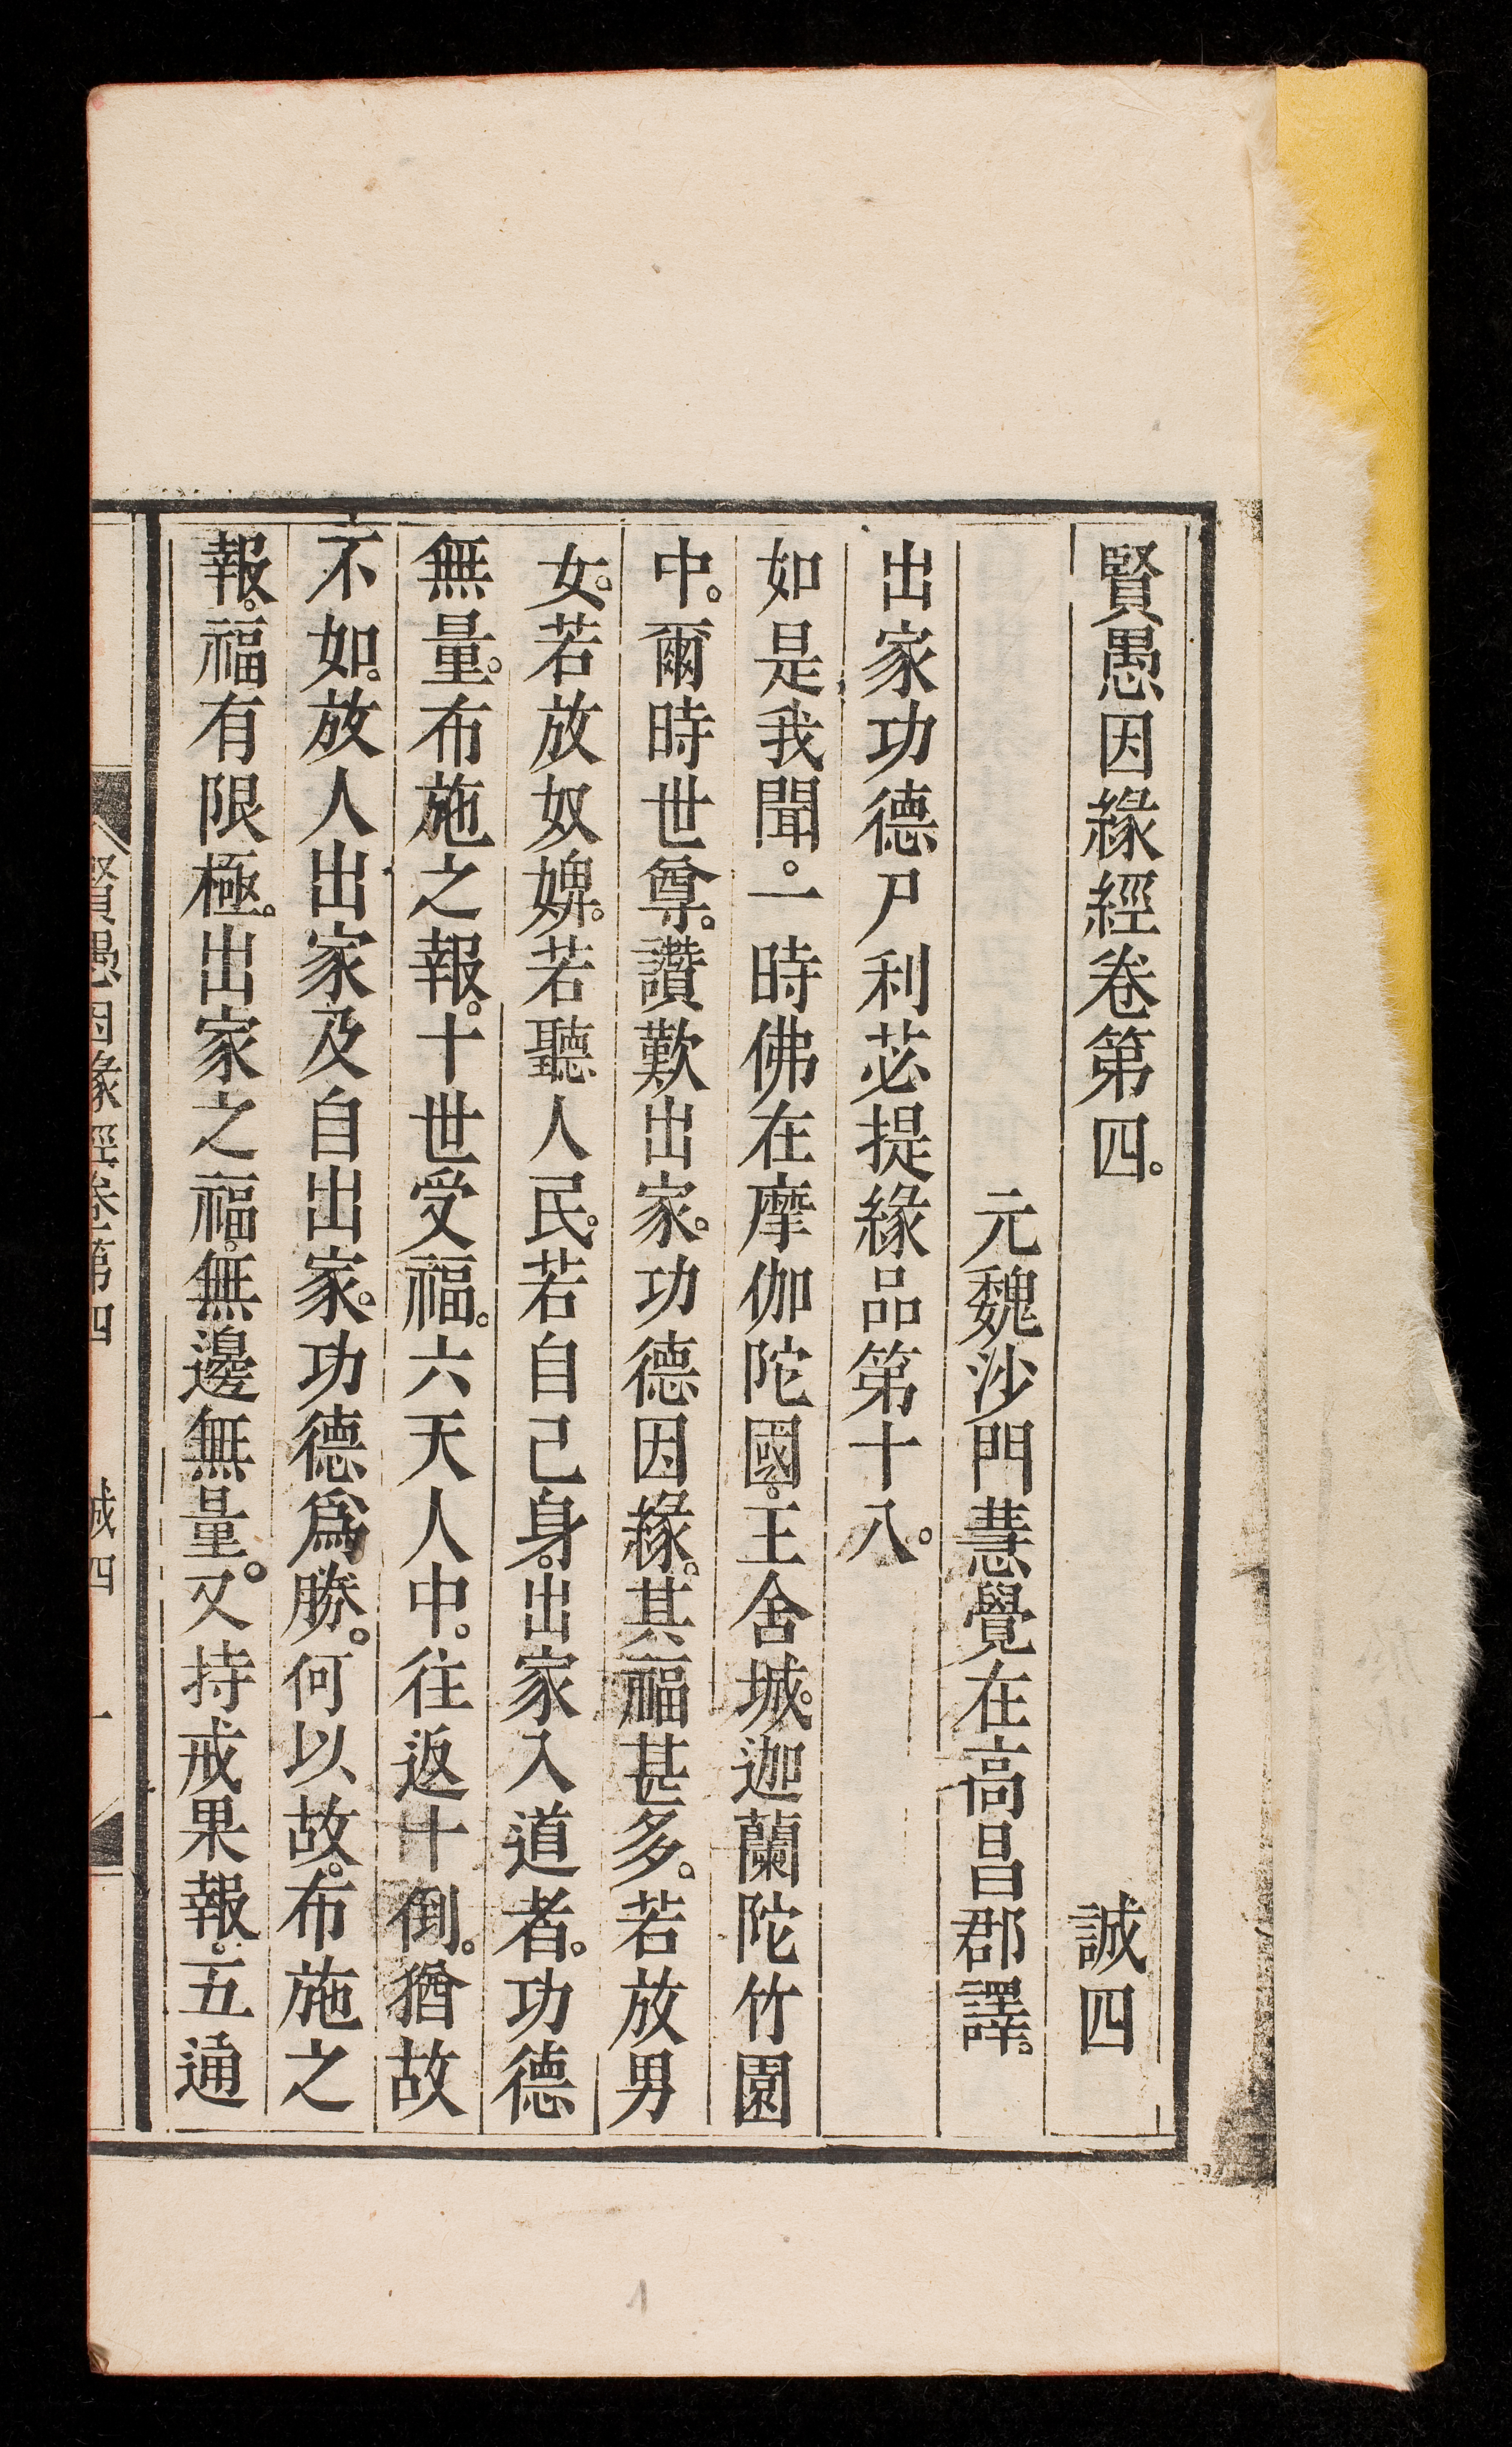 賢愚因緣經卷第四。 誠四
元魏沙門慧覺在高昌郡譯。
出家功德尸利苾提緣品第十八。
如是我聞。一時佛在摩伽陀國。王舍城。迦蘭陀竹園
中。爾時世尊。讚歎出家。功德因緣。其福甚多。若放男
女。若放奴婢。若聽人民。若自己身。出家入道者。功德
無量。布施之報。十世受福。六天人中。往返十倒。猶故
不如。放人出家及自出家。功德爲勝。何以故。布施之
報。福有限極。出家之福。無邊無量。又持戒果報。五通
賢愚因緣經卷第四 誠四 一
1